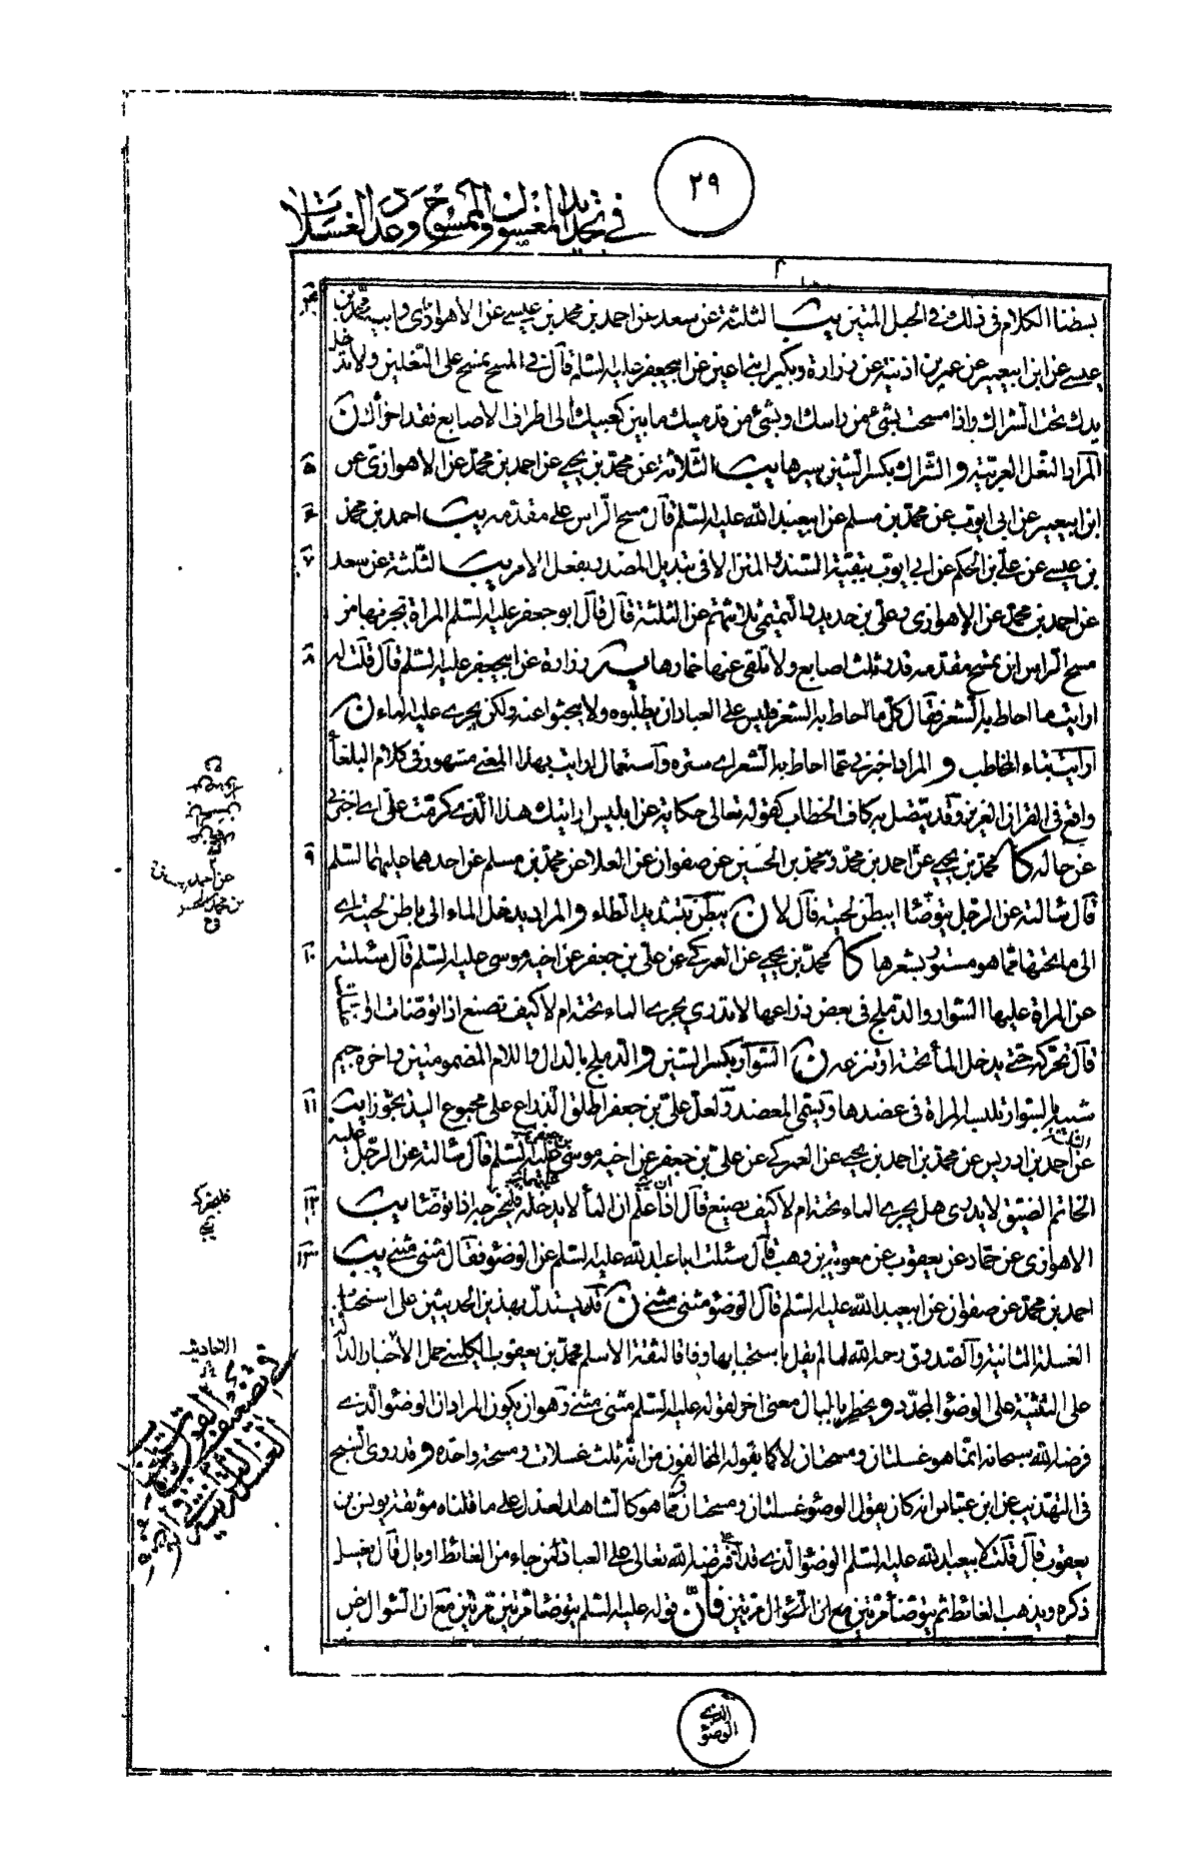 ٢٩
في تحديد المغسول والممسوح وعدد الغسلات
بسطنا الكلام فى ذلك فى الحبل المتين يب الثلثة عن سعد عن احمد بن محمد بن عيسى عن الاهوازى وابيه محمد بن
عيسى عن ابن ابيعمير عن عمر بن اذينة عن زرارة وبكير ابنى اعين عن ابيجعفر عليه السلام قال فى المسح تمسح على النعلين ولا تدخل
يدك تحت الشراك واذا مسحت بشئ من راسك او بشئ من قدميك ما بين كعبيك الى اطراف الاصابع فقد اجزأك ن
المراد النعل العربية والشراك بكسر الشين سيرها يب الثلاثة عن محمد بن يحيى عن احمد بن محمد عن الاهوازى عن
ابن ابيعمير عن ابى ايوب عن محمد بن مسلم عن ابيعبد الله عليه السلام قال مسح الراس على مقدمه يب احمد بن محمد
بن عيسى عن على بن الحكم عن ابى ايوب بتقية السند والمتن الا فى تبديل المصدر بفعل الامر يب الثلثة عن سعد
عن احمد بن محمد عن الاهوازى وعلى بن حديد والتميمى ثلاثتهم عن الثلثة قال قال ابو جعفر عليه السلم المراة تجزيها من
مسح الراس ان تمسح مقدمه قدر ثلث اصابع ولا تلقى عنها خمارها يه زرارة عن ابيجعفر عليه السلم قال قلت له
ارايت ما احاط به الشعر فقال كل ما احاط به الشعر فليس على العباد ان يطلبوه ولا يبحثوا عنه ولكن يجرى عليه الماء ن
ارايت بتاء المخاطب والمراد اخبرنى عما احاط به الشعر اى ستره واستعمال ارايت بهذا المعنى مشهور فى كلام البلغاء
واقع فى القران العزيز وقد يتصل به كاف الخطاب كقوله تعالى حكاية عن ابليس ارايتك هذا الذى كرمت على اى اخبرنى
عن حاله كا محمد بن يحيى عن احمد بن محمد ومحمد بن الحسين عن صفوان عن العلا عن محمد بن مسلم عن احدهما عليهما السلم
قال سالته عن الرجل يتوضأ ايبطن لحيته قال لا ن يبطن بتشديد الطاء والمراد يدخل الماء الى باطن لحيته اى
الى ما تحتها مما هو مستور بشعرها كا محمد بن يحيى عن العمركى عن على بن جعفر عن اخيه موسى عليه السلم قال سئلته
عن المراة عليها السوار والدملج فى بعض ذراعها لا تدرى يجرى الماء تحته ام لا كيف تصنع اذا توضات او اغتسلت
قال تحركه حتى يدخل الماء تحته او تنزعه ن السوار بكسر السين والدملج بالدال واللام المضمومتين واخره جيم
شبيه بالسوار تلبسه المراة فى عضدها ويسمى المعضد ولعل على بن جعفر اطلق الذراع على مجموع اليد تجوزا يب
عن احمد بن ادريس عن محمد بن احمد بن يحيى عن العمركى عن على بن جعفر عن اخيه موسى عليه السلم قال سالته عن الرجل عليه
الخاتم الضيق لا يدرى هل يجرى الماء تحته ام لا كيف يصنع قال اذا علم ان الماء لا يدخله فليخرجه اذا توضأ يب
الاهوازى عن حماد عن يعقوب عن معوية بن وهب قال سئلت ابا عبد الله عليه السلم عن الوضوء فقال مثنى مثنى يب
احمد بن محمد عن صفوان عن ابيعبد الله عليه السلم قال الوضوء مثنى مثنى ن قد يستدل بهذين الحديثين على استحباب
الغسلة الثانية والصدوق رحمه الله لما لم يقل باستحبابها وفاقا لثقة الاسلم محمد بن يعقوب الكلينى حمل الاخبار الدالة
على التثنية على الوضوء المجدد ويخطر بالبال معنى اخر لقوله عليه السلم مثنى مثنى وهو ان يكون المراد ان الوضوء الذى
فرضه الله سبحانه انما هو غسلتان ومسحتان لا كما يقوله المخالفون من انه ثلث غسلات ومسحة واحدة وقد روى الشيخ
فى التهذيب عن ابن عباس انه كان يقول الوضوء غسلتان ومسحتان ومما هو كالشاهد العدل على ما قلناه موثقة يونس بن
يعقوب قال قلت لابيعبد الله عليه السلم الوضوء الذى قد افترضه الله تعالى على العباد لمن جاء من الغائط او بال قال يغسل
ذكره ويذهب الغائط ثم يتوضأ مرتين مرتين فان قوله عليه السلم يتوضأ مرتين مرتين مع ان السؤال عن
٥
٧
٨
٩
١٠
١١
١٢
١٣
فليحركه
الوضوء